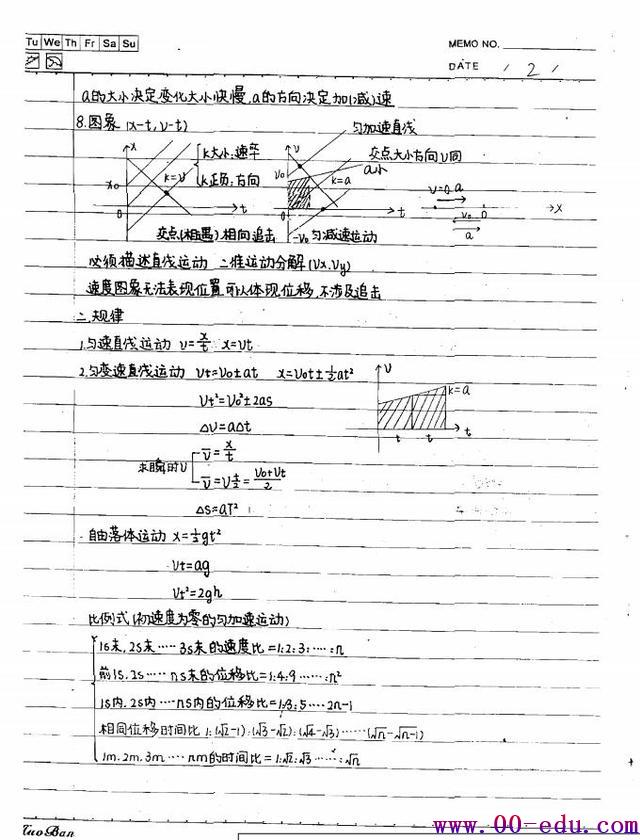 Tu We Th Fr Sa Su
MEMO NO.
DATE / 2 /
a的大小决定变化大小快慢,a的方向决定加(减)速
8.图象 (x-t,v-t)
x
x₀
0
t
k=v
k大小:速率
k正负:方向
交点(相遇)相向追击
匀加速直线
v
v₀
0
-v₀
t
k=a
a小
匀减速运动
交点大小方向v同
v=0 a
v₀ 0
a
x
必须描述直线运动 二维运动分解(Vx,Vy)
速度图象无法表现位置,可以体现位移,不涉及追击
二.规律
1.匀速直线运动 v=x/t x=vt
2.匀变速直线运动 Vt=V₀±at x=V₀t±½at²
Vt²=V₀²±2as
ΔV=aΔt
求瞬时V
V̅=x/t
V̅=V t/2=(V₀+Vt)/2
ΔS=aT²
v
k=a
t
t t
自由落体运动 x=½gt²
Vt=ag
Vt²=2gh
比例式(初速度为零的匀加速运动)
1s末,2s末……3s末的速度比=1:2:3:……:n
前1s,2s……ns末的位移比=1:4:9……:n²
1s内,2s内……ns内的位移比=1:3:5……2n-1
相同位移时间比 1:(√2-1):(√3-√2):(√4-√3)……(√n-√n-1)
1m,2m,3m……nm的时间比=1:√2:√3……:√n
TuoBan
www.00-edu.com